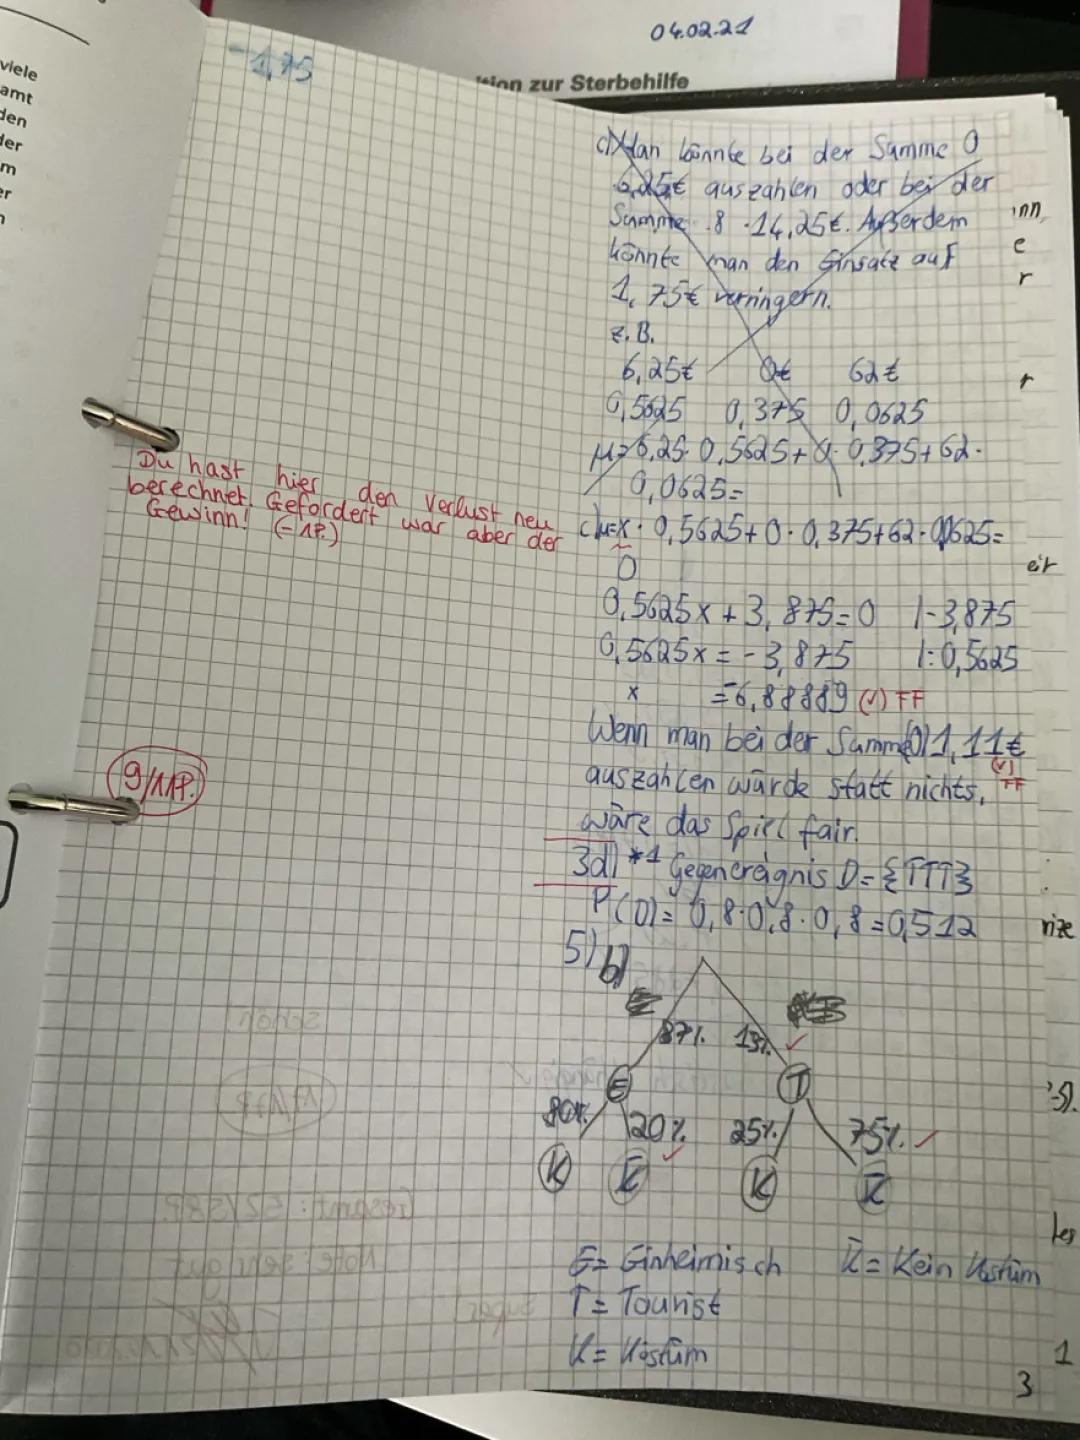 04.02.21
tion zur Sterbehilfe
viele
amt
den
der
m
er
-1,75
c) Man könnte bei der Summe 0
6,25€ auszahlen oder bei der
Summe 8 14,25€. Außerdem
könnte man den Einsatz auf
1,75€ verringern.
z.B.
6,25€ 0€ 62€
0,5625 0,375 0,0625
μ=6,25·0,5625+0·0,375+62·
0,0625=
Du hast hier den Verlust neu
berechnet. Gefordert war aber der
Gewinn! (-1P.)
c) μ=x·0,5625+0·0,375+62·0,0625=
0
0,5625x+3,875=0 |-3,875
0,5625x=-3,875 |:0,5625
x =-6,88889 (✓) FF
Wenn man bei der Summe(0) 1,11€
(✓) FF
auszahlen würde statt nichts,
wäre das Spiel fair.
9/11P.
3d) *1 Gegenereignis D={TTT}
P(D)=0,8·0,8·0,8=0,512
5) b)
87% 13% ✓
E T
80% 20% ✓ 25% 75% ✓
K K̅ K K̅
E= Einheimisch K̅= Kein Kostüm
T= Tourist
K= Kostüm
inn,
e
r
r
eit
-5).
1
3
schön!
17/17P.
Gesamt: 52/58P.
Note: sehr gut
Super